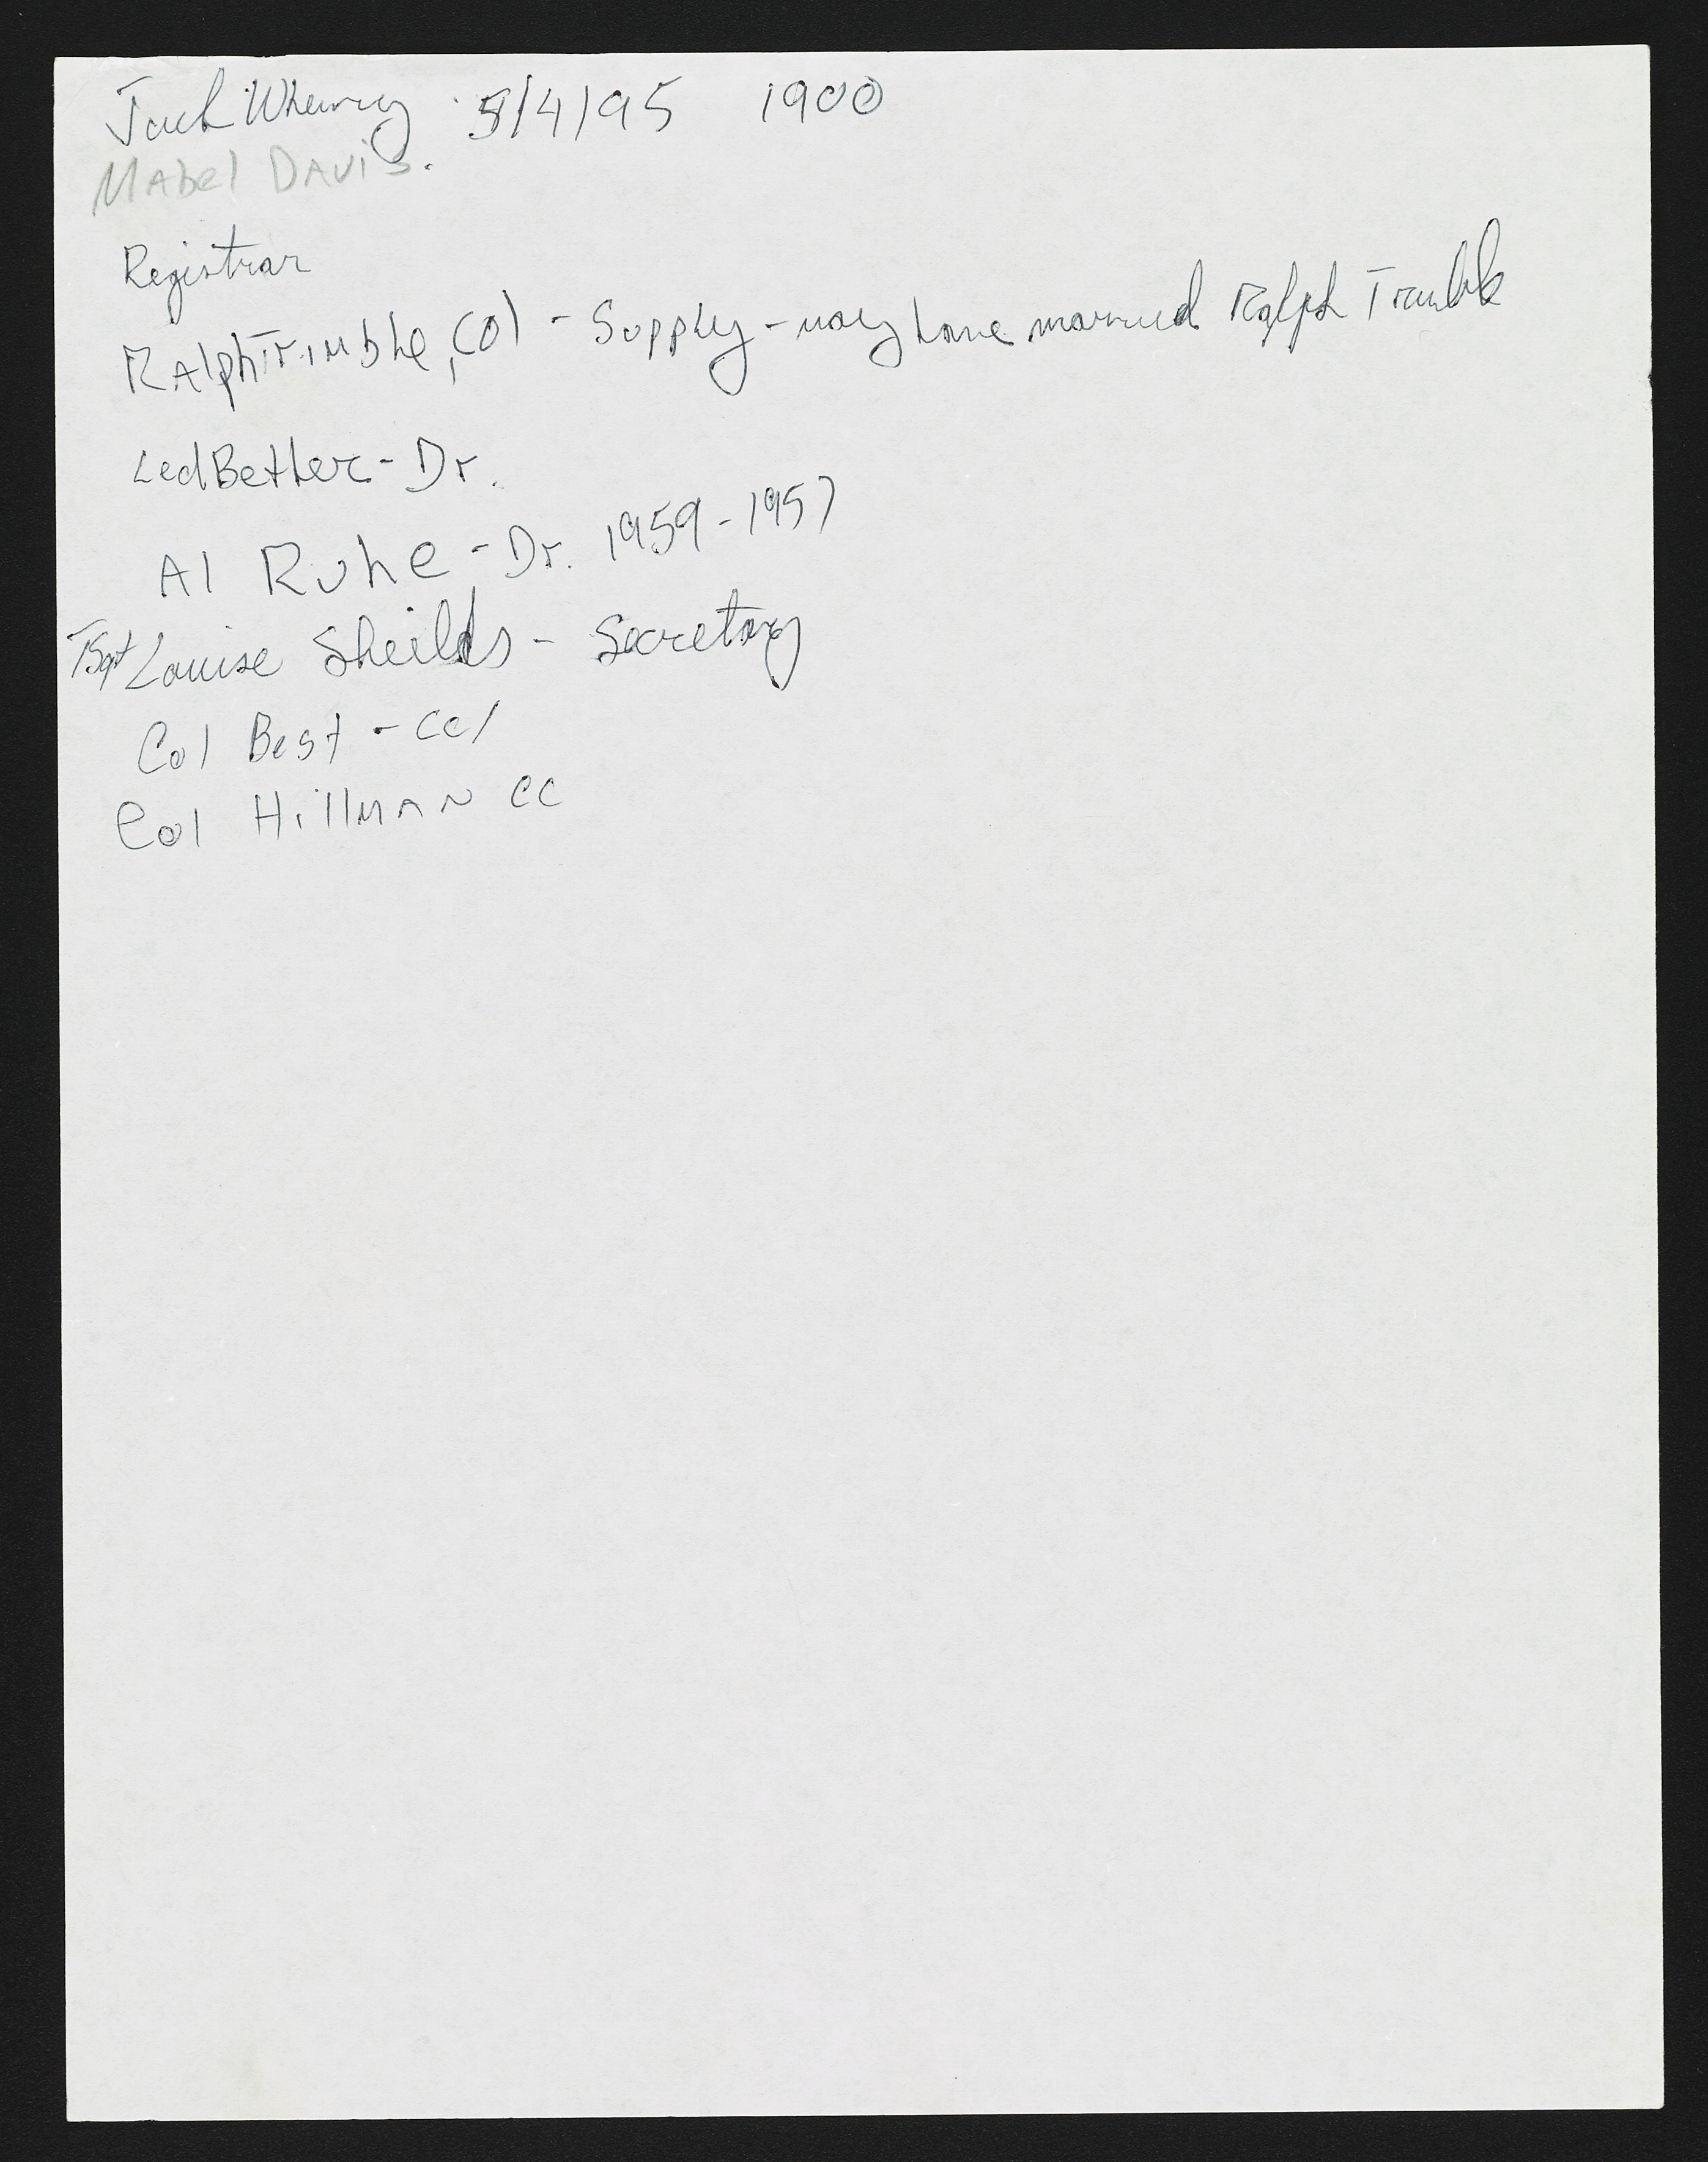 Jack Wherry 5/4/95 1900
Mabel Davis.
Registrar
Ralph Trimble, Col - Supply - may have married Ralph Trimble
LedBetter - Dr.
Al Ruhe - Dr. 1959-1957
TSgt Louise Sheilds - Secretary
Col Best - CC/
Col Hillman CC